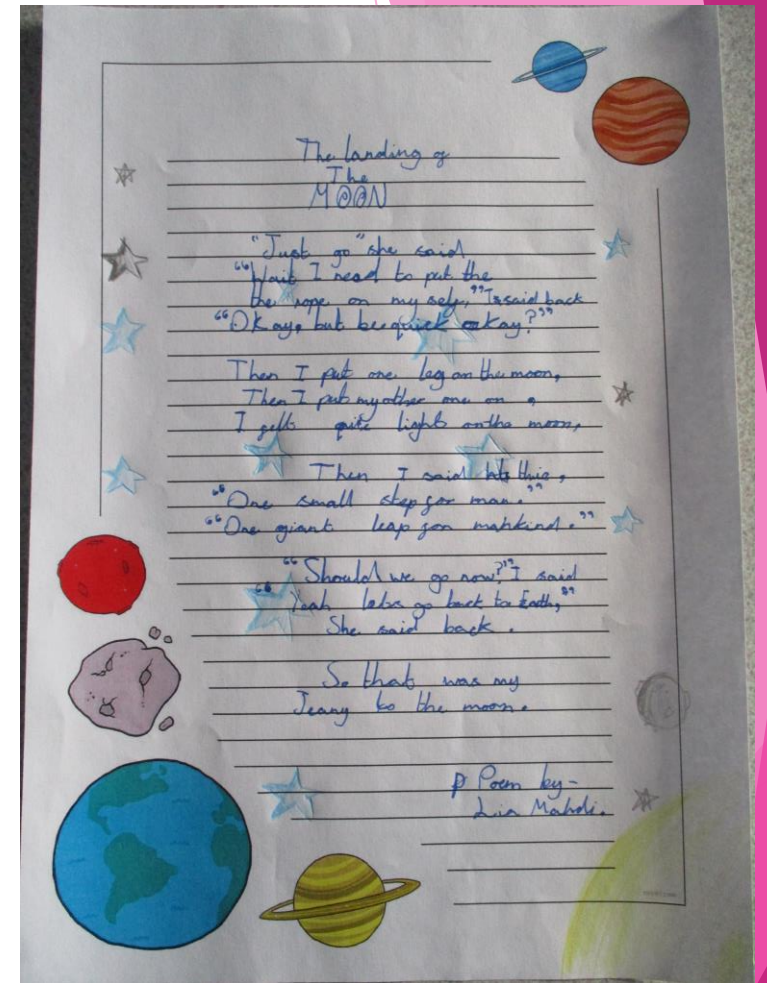 The landing of
The
MOON
"Just go" she said
"Wait I need to put the
the rope on my self," I said back
"OKay, but be quick okay?"
Then I put one leg on the moon,
Then I put my other one on,
I gelt quite light on the moon,
Then I said this,
"One small step for man."
"One giant leap for mahkind."
"Should we go now?" I said
"Yeah lets go back to Earth,"
She said back.
So that was my
Jeany to the moon.
Poem by-
Lia Mahdi.